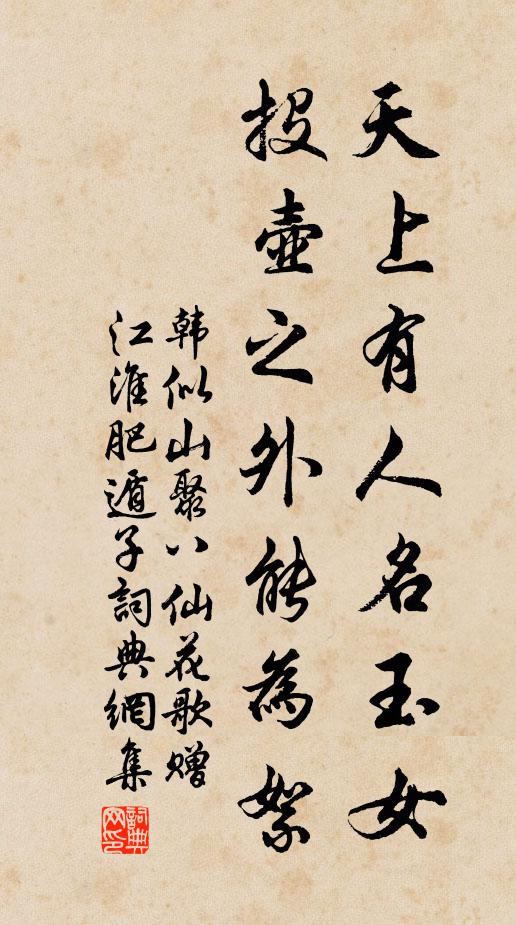 天上有人名玉女
投壺之外能為絮
韩似山聚八仙花歌赠
江淮肥遁子詞典網集
詞典网印